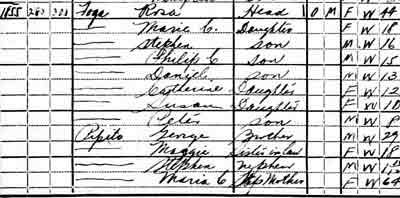 1155 282 301 Foga Rosa Head O M F W 44
Marie C. Daughter F W 18
Stephen son M W 16
Philip C son M W 15
Daniel son M W 13
Catherine Daughter F W 12
Susan Daughter F W 10
Peter son M W 8
Pipito George Brother M W 29
Maggie Sister in law F W 18
Stephen nephew M W
Maria C Step Mother F W 64